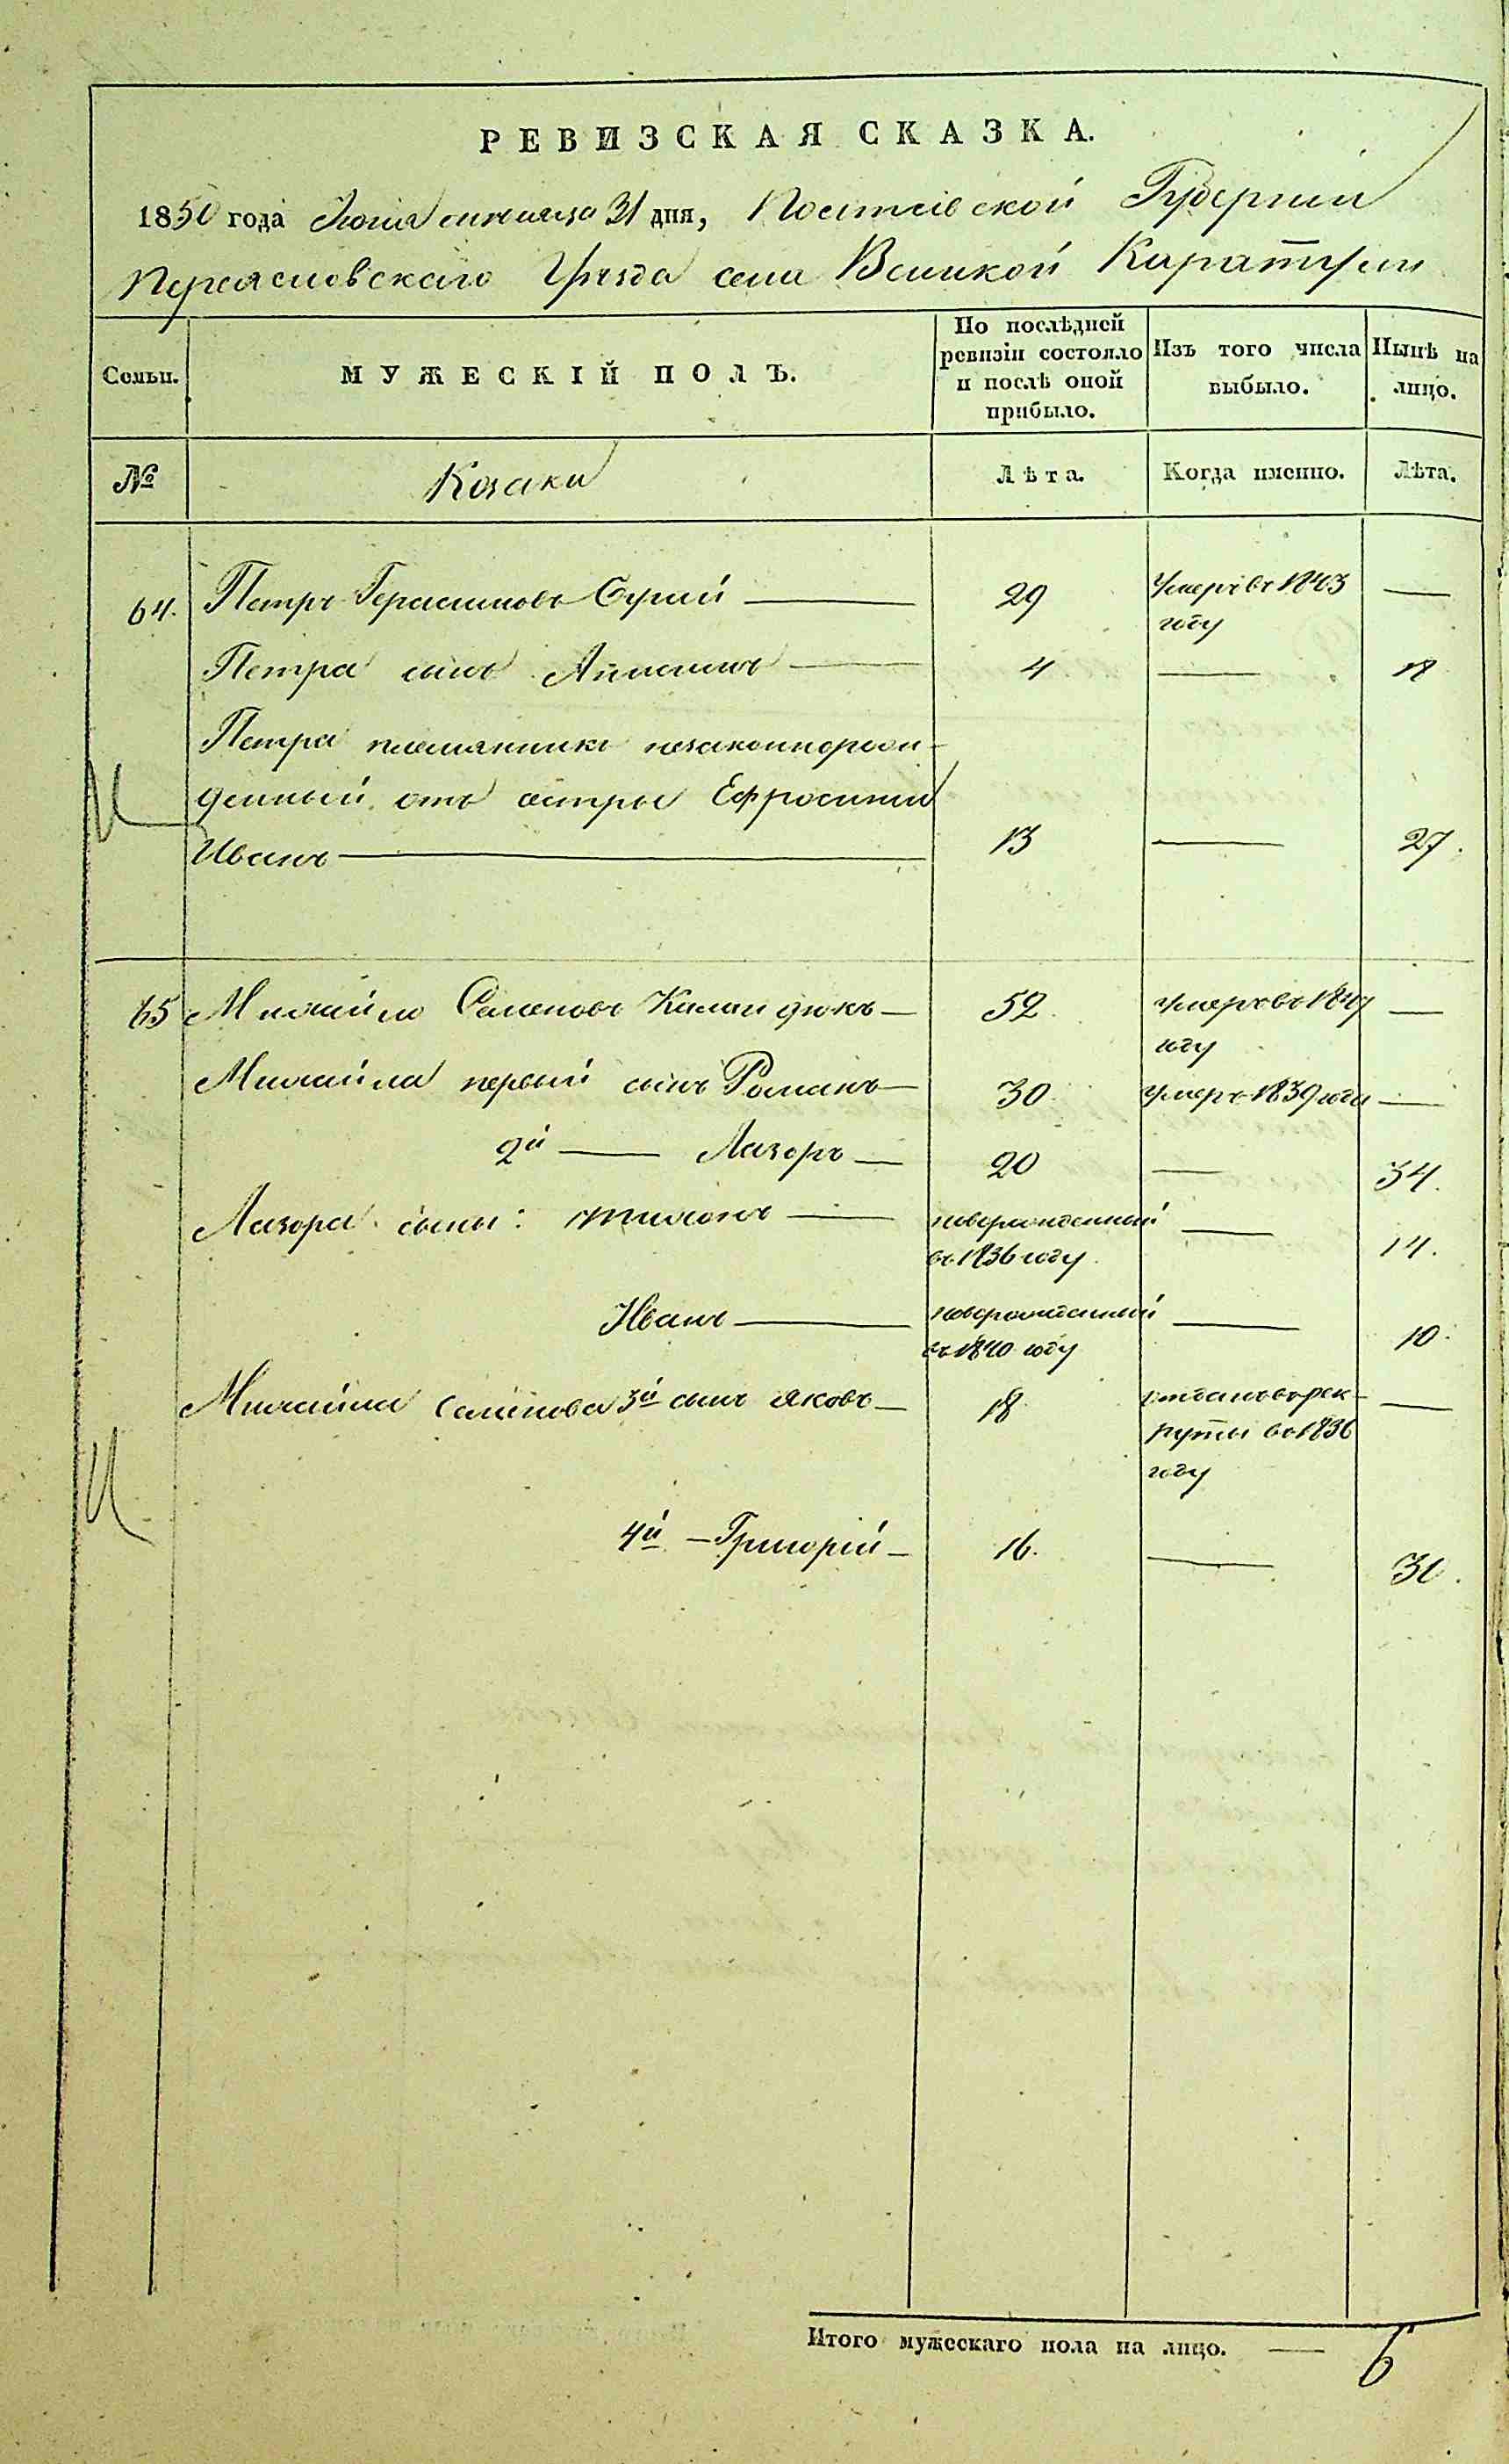 РЕВИЗСКАЯ СКАЗКА.
1850 года Юлія мѣсяца 31 дня, Полтавской Губерніи
Переясловскаго Уѣзда села Великой Каратули
Семьи.
МУЖЕСКІЙ ПОЛЪ.
По послѣдней
ревизіи состояло
и послѣ оной
прибыло.
Изъ того числа
выбыло.
Нынѣ на
лицо.
№
Козаки
Лѣта.
Когда именно.
Лѣта.
64. Петръ Герасимовъ Сулій — 29 Умеръ въ 1843 —
году
Петра сынъ — 4 — 18
Петра племянникъ незаконнорож-
денный отъ сестры Ефросиніи
Иванъ — 13 — 27.
65 Михайло Семеновъ — 52. Умеръ въ 1847 —
году
Михайла первый сынъ Романъ — 30 Умеръ 1839 года —
2й — Лазорь — 20 — 34.
Лазоря сыны: Тихонъ — новорожденный — 14.
въ 1836 году
Иванъ — новорожденный — 10.
въ 1840 году
Михайла Семенова 3й сынъ Яковъ — 18 отданъ въ рек- —
руты въ 1836
году
4й — Григорій — 16. — 30.
Итого мужескаго пола на лицо. — 6